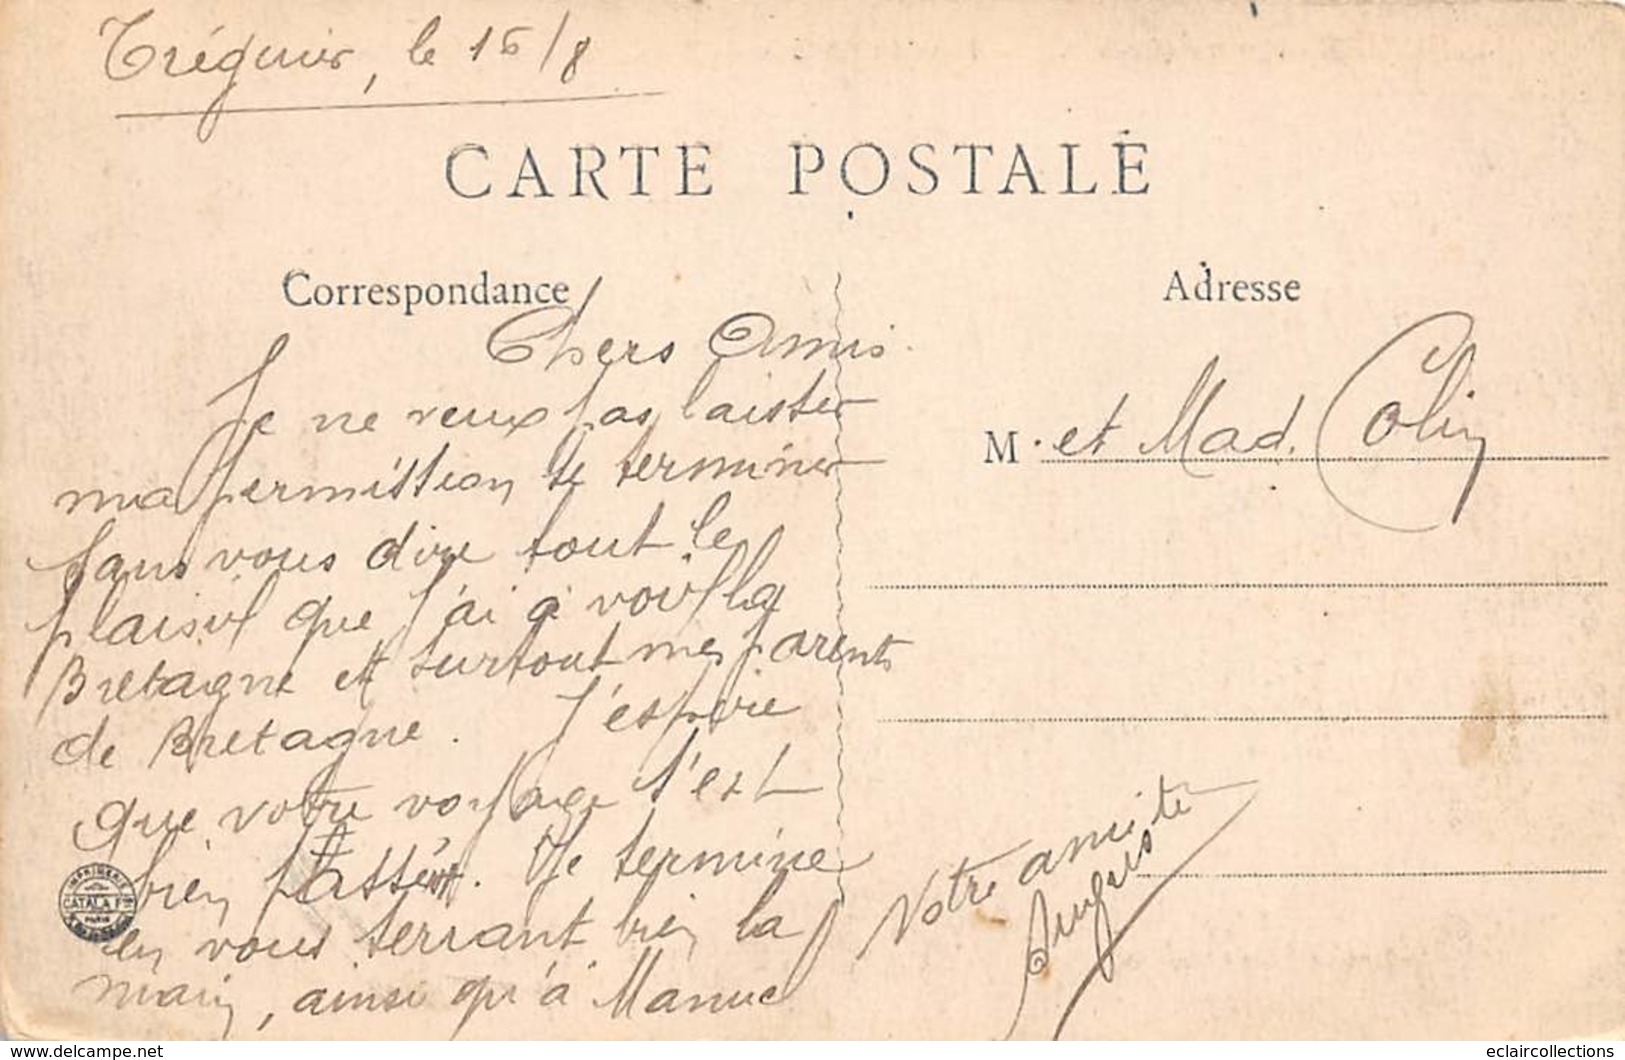 Tréguier, le 16/8
CARTE POSTALE
Correspondance
Adresse
Chers Amis
Je ne veux pas laisser
ma permission se terminer
sans vous dire tout le
plaisir que j'ai à voir la
Bretagne et surtout mes parents
de Bretagne. J'espère
que votre voyage s'est
bien passé. Je termine
en vous serrant bien la
main, ainsi qu'à Manuel
M. et Mad. Colin
Votre ami
IMPRIMERIE
CATALA Fres
PARIS
www.delcampe.net
eclaircollections